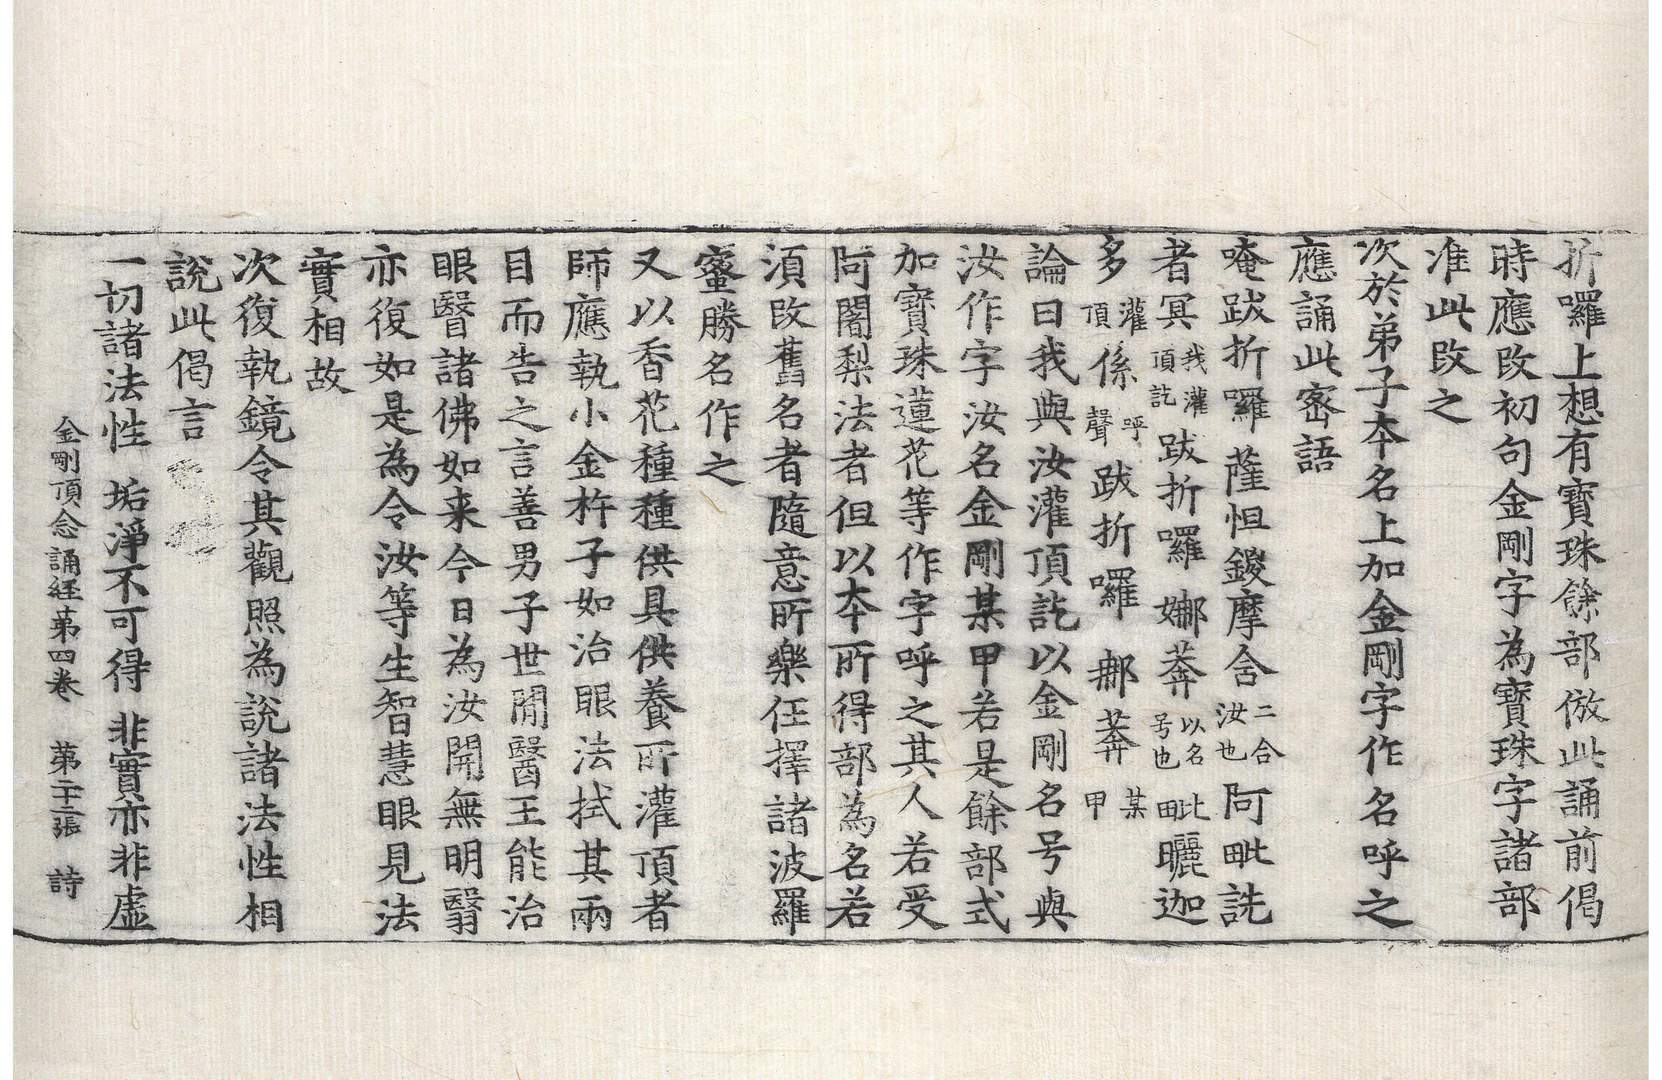 折囉上想有寶珠餘部倣此誦前偈
時應改初句金剛字為寶珠字諸部
准此改之
次於弟子夲名上加金剛字作名呼之
應誦此密語
唵跋折囉薩怛鑁摩含二合汝也阿毗詵
者冥我灌頂訖跋折囉娜莾以名号也比田曬迦
多灌頂係呼聲跋折囉𨚗莾某甲
論曰我與汝灌頂訖以金剛名号與
汝作字汝名金剛某甲若是餘部式
加寶珠蓮花等作字呼之其人若受
阿闍梨法者但以夲所得部為名若
須改舊名者隨意所樂任擇諸波羅
蜜勝名作之
又以香花種種供具供養所灌頂者
師應執小金杵子如治眼法拭其兩
目而告之言善男子世間醫王能治
眼瞖諸佛如来今日為汝開無明翳
亦復如是為令汝等生智慧眼見法
實相故
次復執鏡令其觀照為說諸法性相
說此偈言
一切諸法性 垢淨不可得 非實亦非虛
金剛頂念誦経苐四卷 第二十二張 詩